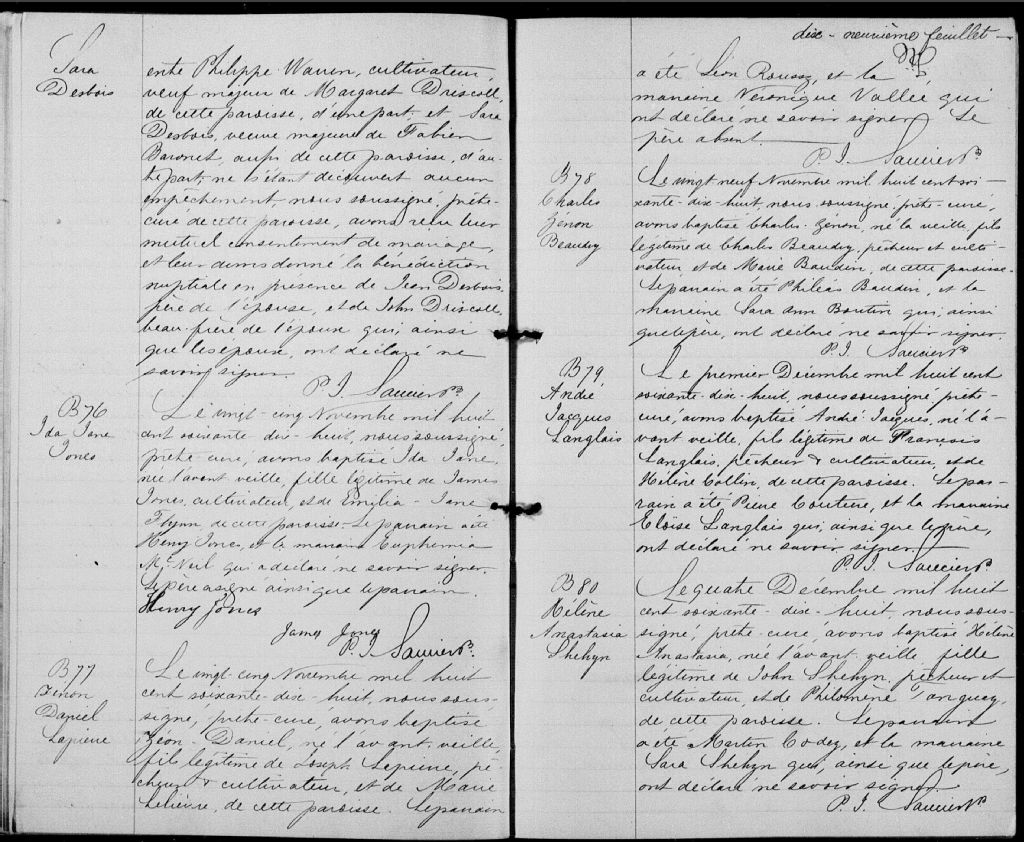 Sara
Desbois
entre Philippe Warren, cultivateur,
veuf majeur de Margaret Driscoll,
de cette paroisse, d'une part, et Sara
Desbois, veuve majeure de Fabien
Baronet, aussi de cette paroisse, d'au-
tre part, ne s'étant découvert aucun
empêchement, nous soussigné, prêtre-
curé de cette paroisse, avons reçu leur
mutuel consentement de mariage,
et leur avons donné la bénédiction
nuptiale en présence de Jean Desbois,
père de l'épouse, et de John Driscoll,
beau-frère de l'époux qui, ainsi
que les époux, ont déclaré ne
savoir signer.
P. J. Saucier Ptre
B76
Ida Jane
Jones
Le vingt-cinq Novembre mil huit
cent soixante-dix-huit, nous soussigné,
prêtre-curé, avons baptisé Ida Jane,
née l'avant veille, fille légitime de James
Jones, cultivateur, et de Emilia-Jane
Flynn, de cette paroisse. Le parrain a été
Henry Jones, et la marraine Euphemia
Mc Neil qui a déclaré ne savoir signer.
Le père a signé ainsi que le parrain.
Henry Jones
James Jones
P. J. Saucier Ptre
B77
Zénon
Daniel
Lapierre
Le vingt-cinq Novembre mil huit
cent soixante-dix-huit, nous sous-
signé, prêtre-curé, avons baptisé
Zéon-Daniel, né l'avant-veille,
fils légitime de Joseph Lapierre, pê-
cheur & cultivateur, et de Marie
Lelièvre, de cette paroisse. Le parrain
dix-neuvième feuillet
a été Léon Roussy, et la
marraine Véronique Vallée qui
ont déclaré ne savoir signer. Le
père absent.
P. J. Saucier Ptre
B78
Charles
Zénon
Beaudry
Le vingt neuf Novembre mil huit cent soi-
xante-dix-huit, nous soussigné, prêtre-curé,
avons baptisé Charles-Zénon, né la veille, fils
légitime de Charles Beaudry, pêcheur et culti-
vateur, et de Marie Baudin, de cette paroisse.
Le parrain a été Philéas Baudin, et la
marraine Sara Ann Boutin qui, ainsi
que le père, ont déclaré ne savoir signer.
P. J. Saucier Ptre
B79
André
Jacques
Langlais
Le premier Décembre mil huit cent
soixante-dix-huit, nous soussigné, prêtre-
curé, avons baptisé André-Jacques, né l'a-
vant veille, fils légitime de François
Langlais, pêcheur & cultivateur, et de
Hélène Collin, de cette paroisse. Le par-
rain a été Pierre Couture, et la marraine
Eloïse Langlais qui, ainsi que le père,
ont déclaré ne savoir signer.
P. J. Saucier Ptre
B80
Hélène
Anastasia
Shehyn
Le quatre Décembre mil huit
cent soixante-dix-huit, nous sous-
signé, prêtre-curé, avons baptisé Hélène
Anastasia, née l'avant-veille, fille
légitime de John Shehyn, pêcheur et
cultivateur, et de Philomène Tanguay,
de cette paroisse. Le parrain
a été Martin Codey, et la marraine
Sara Shehyn qui, ainsi que le père,
ont déclaré ne savoir signer.
P. J. Saucier Ptre